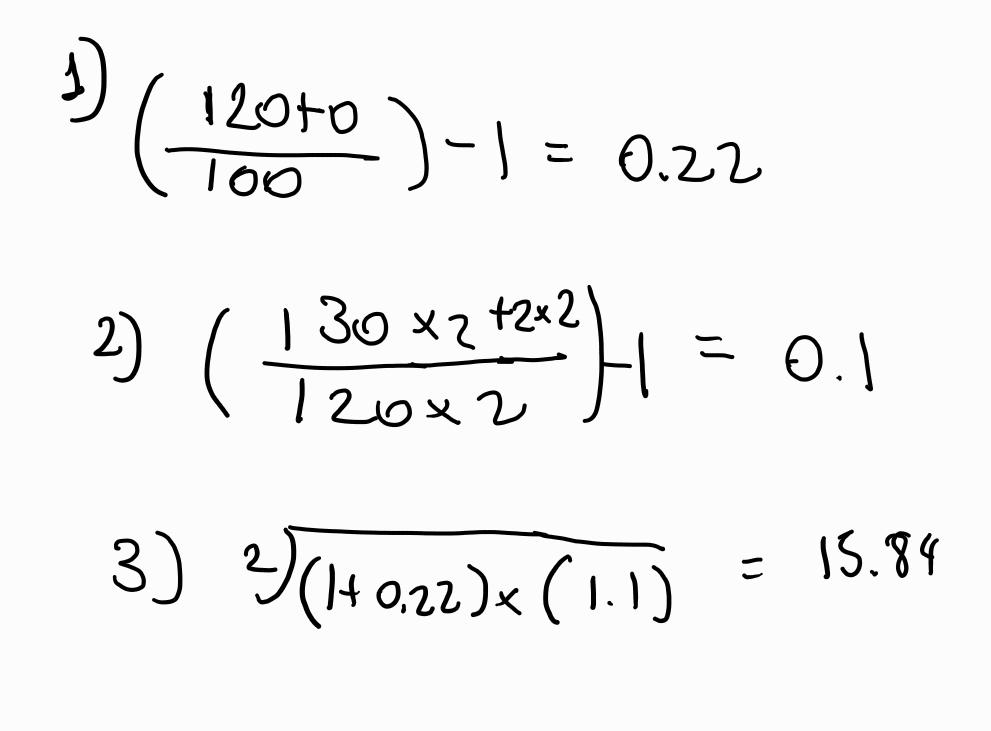 1) (120+0 / 100) - 1 = 0.22
2) (130 x 2 + 2 x 2 / 120 x 2) - 1 = 0.1
3) 2√(1 + 0.22) x (1.1) = 15.84